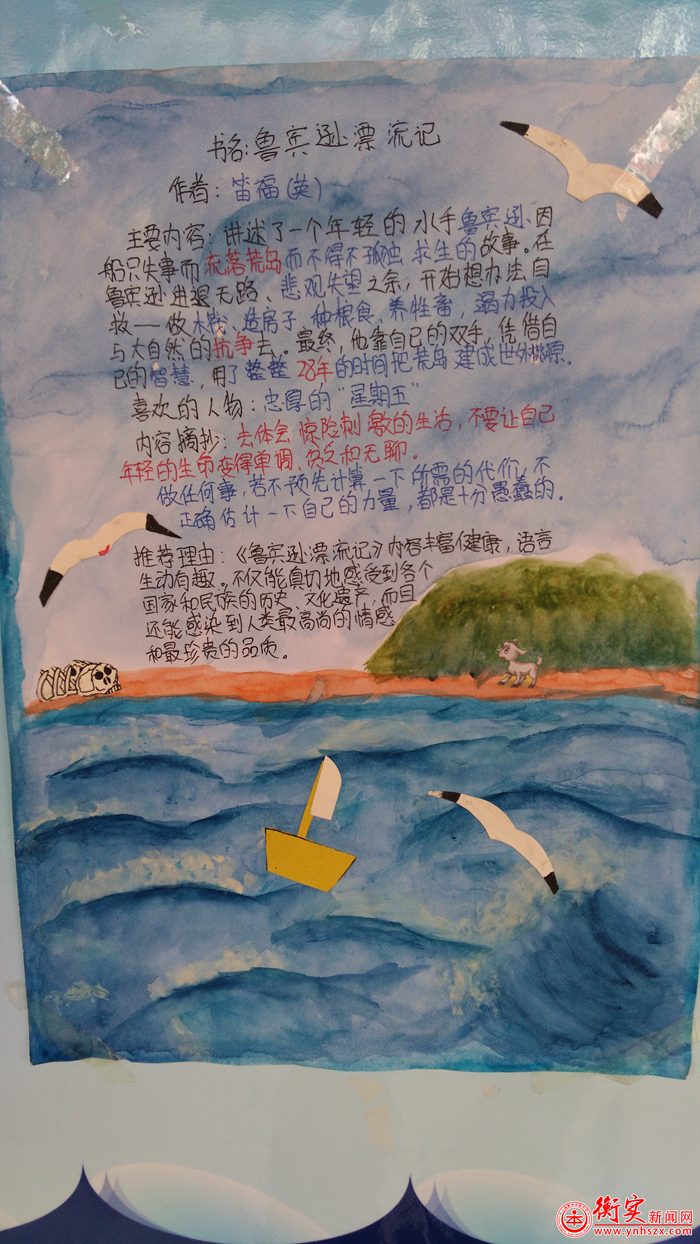 书名:鲁宾逊漂流记
作者:笛福(英)
主要内容:讲述了一个年轻的水手鲁宾逊、因
船只失事而流落荒岛而不得不孤独求生的故事。在
鲁宾逊进退无路、悲观失望之余,开始想办法自
救——做木筏、造房子、种粮食、养牲畜,竭力投入
与大自然的抗争去。最终,他靠自己的双手,凭借自
己的智慧,用了整整28年的时间把荒岛建成世外桃源。
喜欢的人物:忠厚的“星期五”
内容摘抄:去体会惊险刺激的生活,不要让自己
年轻的生命变得单调、贫乏和无聊。
做任何事,若不预先计算一下所需的代价,不
正确估计一下自己的力量,都是十分愚蠢的。
推荐理由:《鲁宾逊漂流记》内容丰富健康,语言
生动有趣。不仅能真切地感受到各个
国家和民族的历史、文化遗产,而且
还能感染到人类最高尚的情感
和最珍贵的品质。
衡实新闻网
www.ynhszx.com